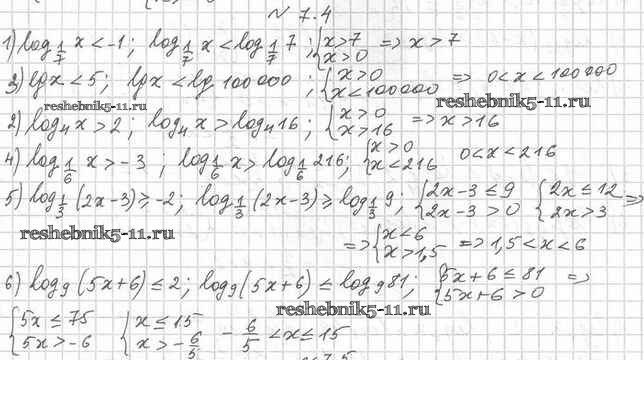 № 7.4
1) log_{1/7} x < -1; log_{1/7} x < log_{1/7} 7; {x > 7 {x > 0 => x > 7
3) lg x < 5; lg x < lg 100000; {x > 0 {x < 100000 => 0 < x < 100000
reshebnik5-11.ru reshebnik5-11.ru
2) log_4 x > 2; log_4 x > log_4 16; {x > 0 {x > 16 => x > 16
4) log_{1/6} x > -3; log_{1/6} x > log_{1/6} 216; {x > 0 {x < 216 0 < x < 216
5) log_{1/3} (2x-3) ≥ -2; log_{1/3} (2x-3) ≥ log_{1/3} 9; {2x-3 ≤ 9 {2x-3 > 0 {2x ≤ 12 {2x > 3 =>
reshebnik5-11.ru
=> {x < 6 {x > 1,5 => 1,5 < x < 6
6) log_9 (5x+6) ≤ 2; log_9 (5x+6) ≤ log_9 81; {5x+6 ≤ 81 {5x+6 > 0 =>
reshebnik5-11.ru
{5x ≤ 75 {5x > -6 {x ≤ 15 {x > -6/5 -6/5 < x ≤ 15